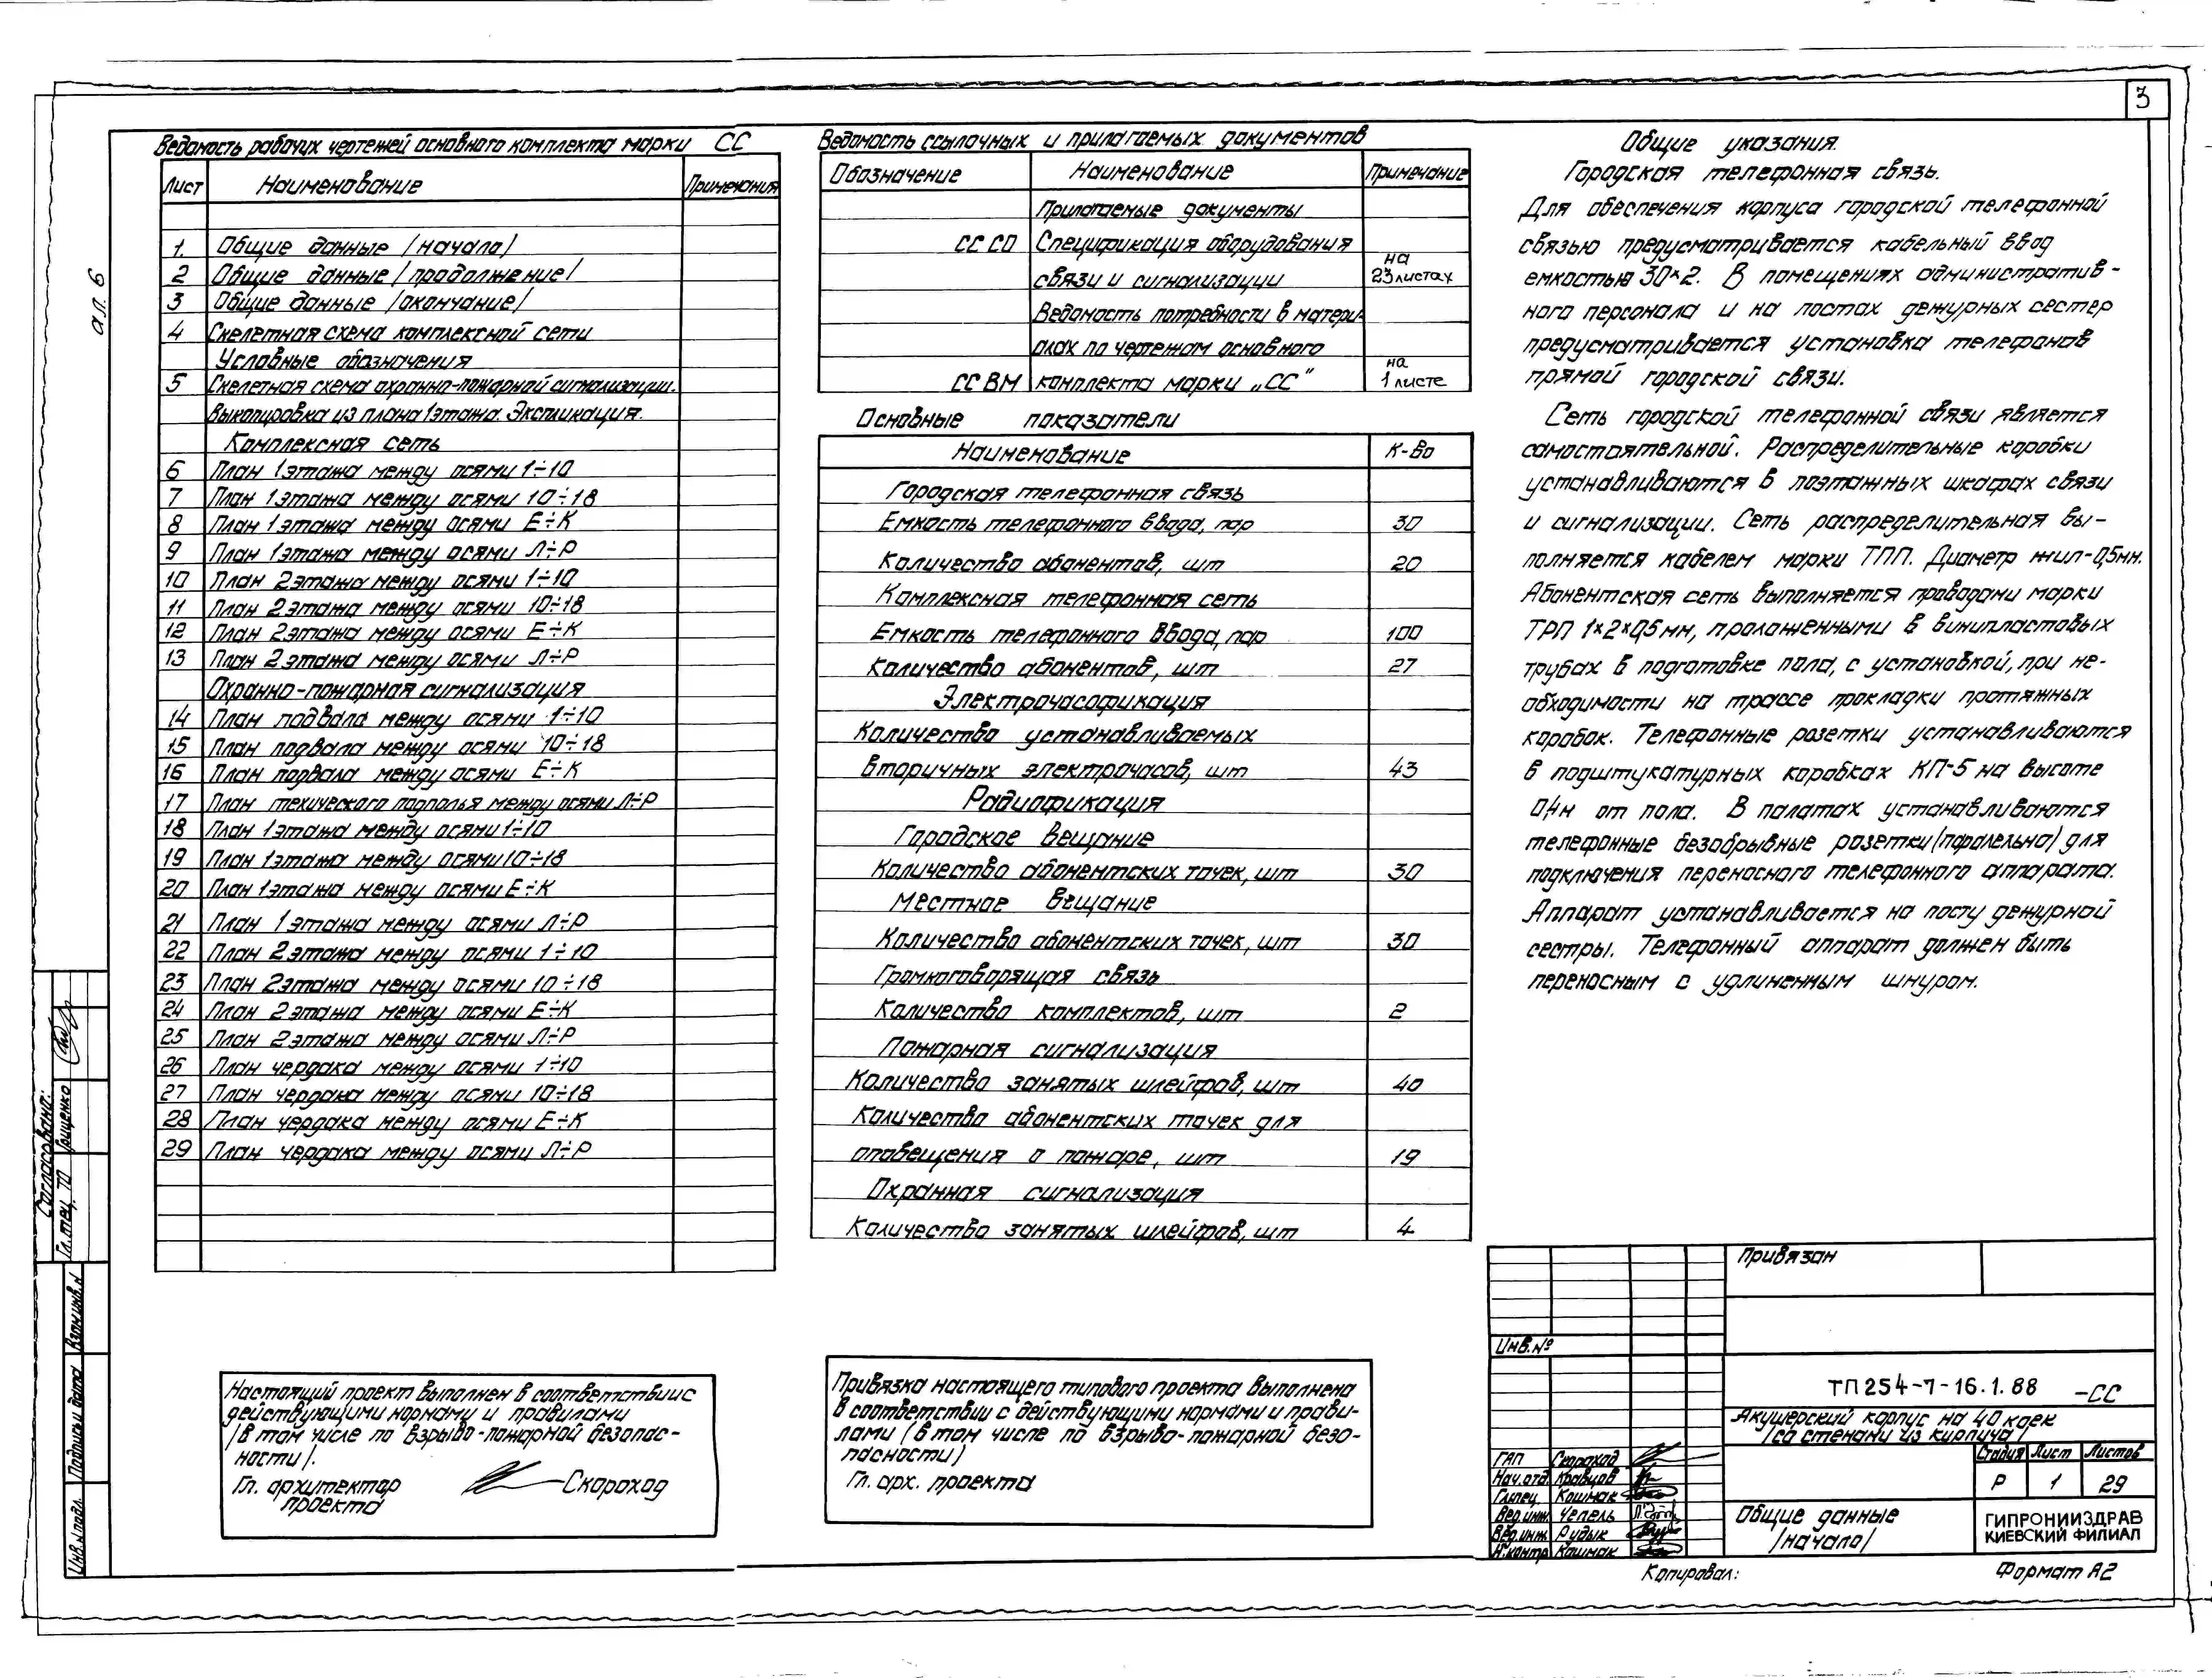 3
ал. 6
Ведомость рабочих чертежей основного комплекта марки СС
Лист Наименование Примечания
1. Общие данные /начало/
2 Общие данные /продолжение/
3 Общие данные /окончание/
4 Скелетная схема комплексной сети
Условные обозначения
5 Скелетная схема охранно-пожарной сигнализации.
Выкопировка из плана 1 этажа. Экспликация.
Комплексная сеть
6 План 1 этажа между осями 1÷10
7 План 1 этажа между осями 10÷18
8 План 1 этажа между осями Е÷К
9 План 1 этажа между осями Л÷Р
10 План 2 этажа между осями 1÷10
11 План 2 этажа между осями 10÷18
12 План 2 этажа между осями Е÷К
13 План 2 этажа между осями Л÷Р
Охранно-пожарная сигнализация
14 План подвала между осями 1÷10
15 План подвала между осями 10÷18
16 План подвала между осями Е÷К
17 План технического подполья между осями Л÷Р
18 План 1 этажа между осями 1÷10
19 План 1 этажа между осями 10÷18
20 План 1 этажа между осями Е÷К
21 План 1 этажа между осями Л÷Р
22 План 2 этажа между осями 1÷10
23 План 2 этажа между осями 10÷18
24 План 2 этажа между осями Е÷К
25 План 2 этажа между осями Л÷Р
26 План чердака между осями 1÷10
27 План чердака между осями 10÷18
28 План чердака между осями Е÷К
29 План чердака между осями Л÷Р
Ведомость ссылочных и прилагаемых документов
Обозначение Наименование Примечание
Прилагаемые документы
СС СО Спецификация оборудования
связи и сигнализации на 23 листах
Ведомость потребности в матери-
алах по чертежам основного
СС ВМ комплекта марки „СС" на 1 листе
Основные показатели
Наименование К-во
Городская телефонная связь
Емкость телефонного ввода, пар 30
Количество абонентов, шт 20
Комплексная телефонная сеть
Емкость телефонного ввода, пар 100
Количество абонентов, шт 27
Электрочасофикация
Количество устанавливаемых
вторичных электрочасов, шт 43
Радиофикация
Городское вещание
Количество абонентских точек, шт 30
Местное вещание
Количество абонентских точек, шт 30
Громкоговорящая связь
Количество комплектов, шт 2
Пожарная сигнализация
Количество занятых шлейфов, шт 40
Количество абонентских точек для
оповещения о пожаре, шт 19
Охранная сигнализация
Количество занятых шлейфов, шт 4
Общие указания.
Городская телефонная связь.
Для обеспечения корпуса городской телефонной
связью предусматривается кабельный ввод
емкостью 30×2. В помещениях административ-
ного персонала и на постах дежурных сестер
предусматривается установка телефонов
прямой городской связи.
Сеть городской телефонной связи является
самостоятельной. Распределительные коробки
устанавливаются в поэтажных шкафах связи
и сигнализации. Сеть распределительная вы-
полняется кабелем марки ТПП. Диаметр жил-0,5мм.
Абонентская сеть выполняется проводами марки
ТРП 1×2×0,5мм, проложенными в винипластовых
трубах в подготовке пола, с установкой, при не-
обходимости на трассе прокладки протяжных
коробок. Телефонные розетки устанавливаются
в подштукатурных коробках КП-5 на высоте
0,4м от пола. В палатах устанавливаются
телефонные безобрывные розетки (паралельно) для
подключения переносного телефонного аппарата.
Аппарат устанавливается на посту дежурной
сестры. Телефонный аппарат должен быть
переносным с удлиненным шнуром.
Согласовано:
Гл. спец. ТО Грищенко
Инв. № подл. Подпись и дата Взам. инв. №
Настоящий проект выполнен в соответствии с
действующими нормами и правилами
/в том числе по взрыво-пожарной безопас-
ности/.
Гл. архитектор
проекта Скороход
Привязка настоящего типового проекта выполнена
в соответствии с действующими нормами и прави-
лами (в том числе по взрыво-пожарной безо-
пасности)
Гл. арх. проекта
Привязан
Инв. №
ТП 254-7-16.1.88 -СС
Акушерский корпус на 40 коек
/со стенами из кирпича/
ГАП Скороход
Нач. отд. Кравцов
Гл. спец. Кошмак
Вед. инж. Чепель
Вед. инж. Рудык
Н. контр. Кошмак
Стадия Лист Листов
Р 1 29
Общие данные
/начало/
ГИПРОНИИЗДРАВ
КИЕВСКИЙ ФИЛИАЛ
Копировал:
Формат А2